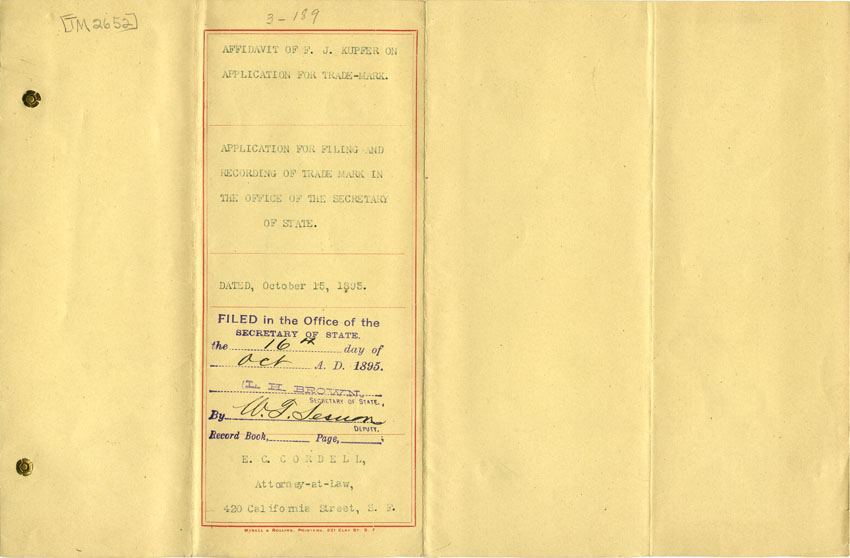 [TM 2652]
3-189
AFFIDAVIT OF F. J. KUPFER ON
APPLICATION FOR TRADE-MARK.
APPLICATION FOR FILING AND
RECORDING OF TRADE MARK IN
THE OFFICE OF THE SECRETARY
OF STATE.
DATED, October 15, 1895.
FILED in the Office of the
SECRETARY OF STATE.
the 16th day of
Oct A. D. 1895.
L. H. BROWN,
SECRETARY OF STATE.
By W. T. Sesnon
DEPUTY.
Record Book, Page,
E. C. CORDELL,
Attorney-at-Law,
420 California Street, S. F.
MYSELL & ROLLINS, PRINTERS, 521 CLAY ST. S. F.